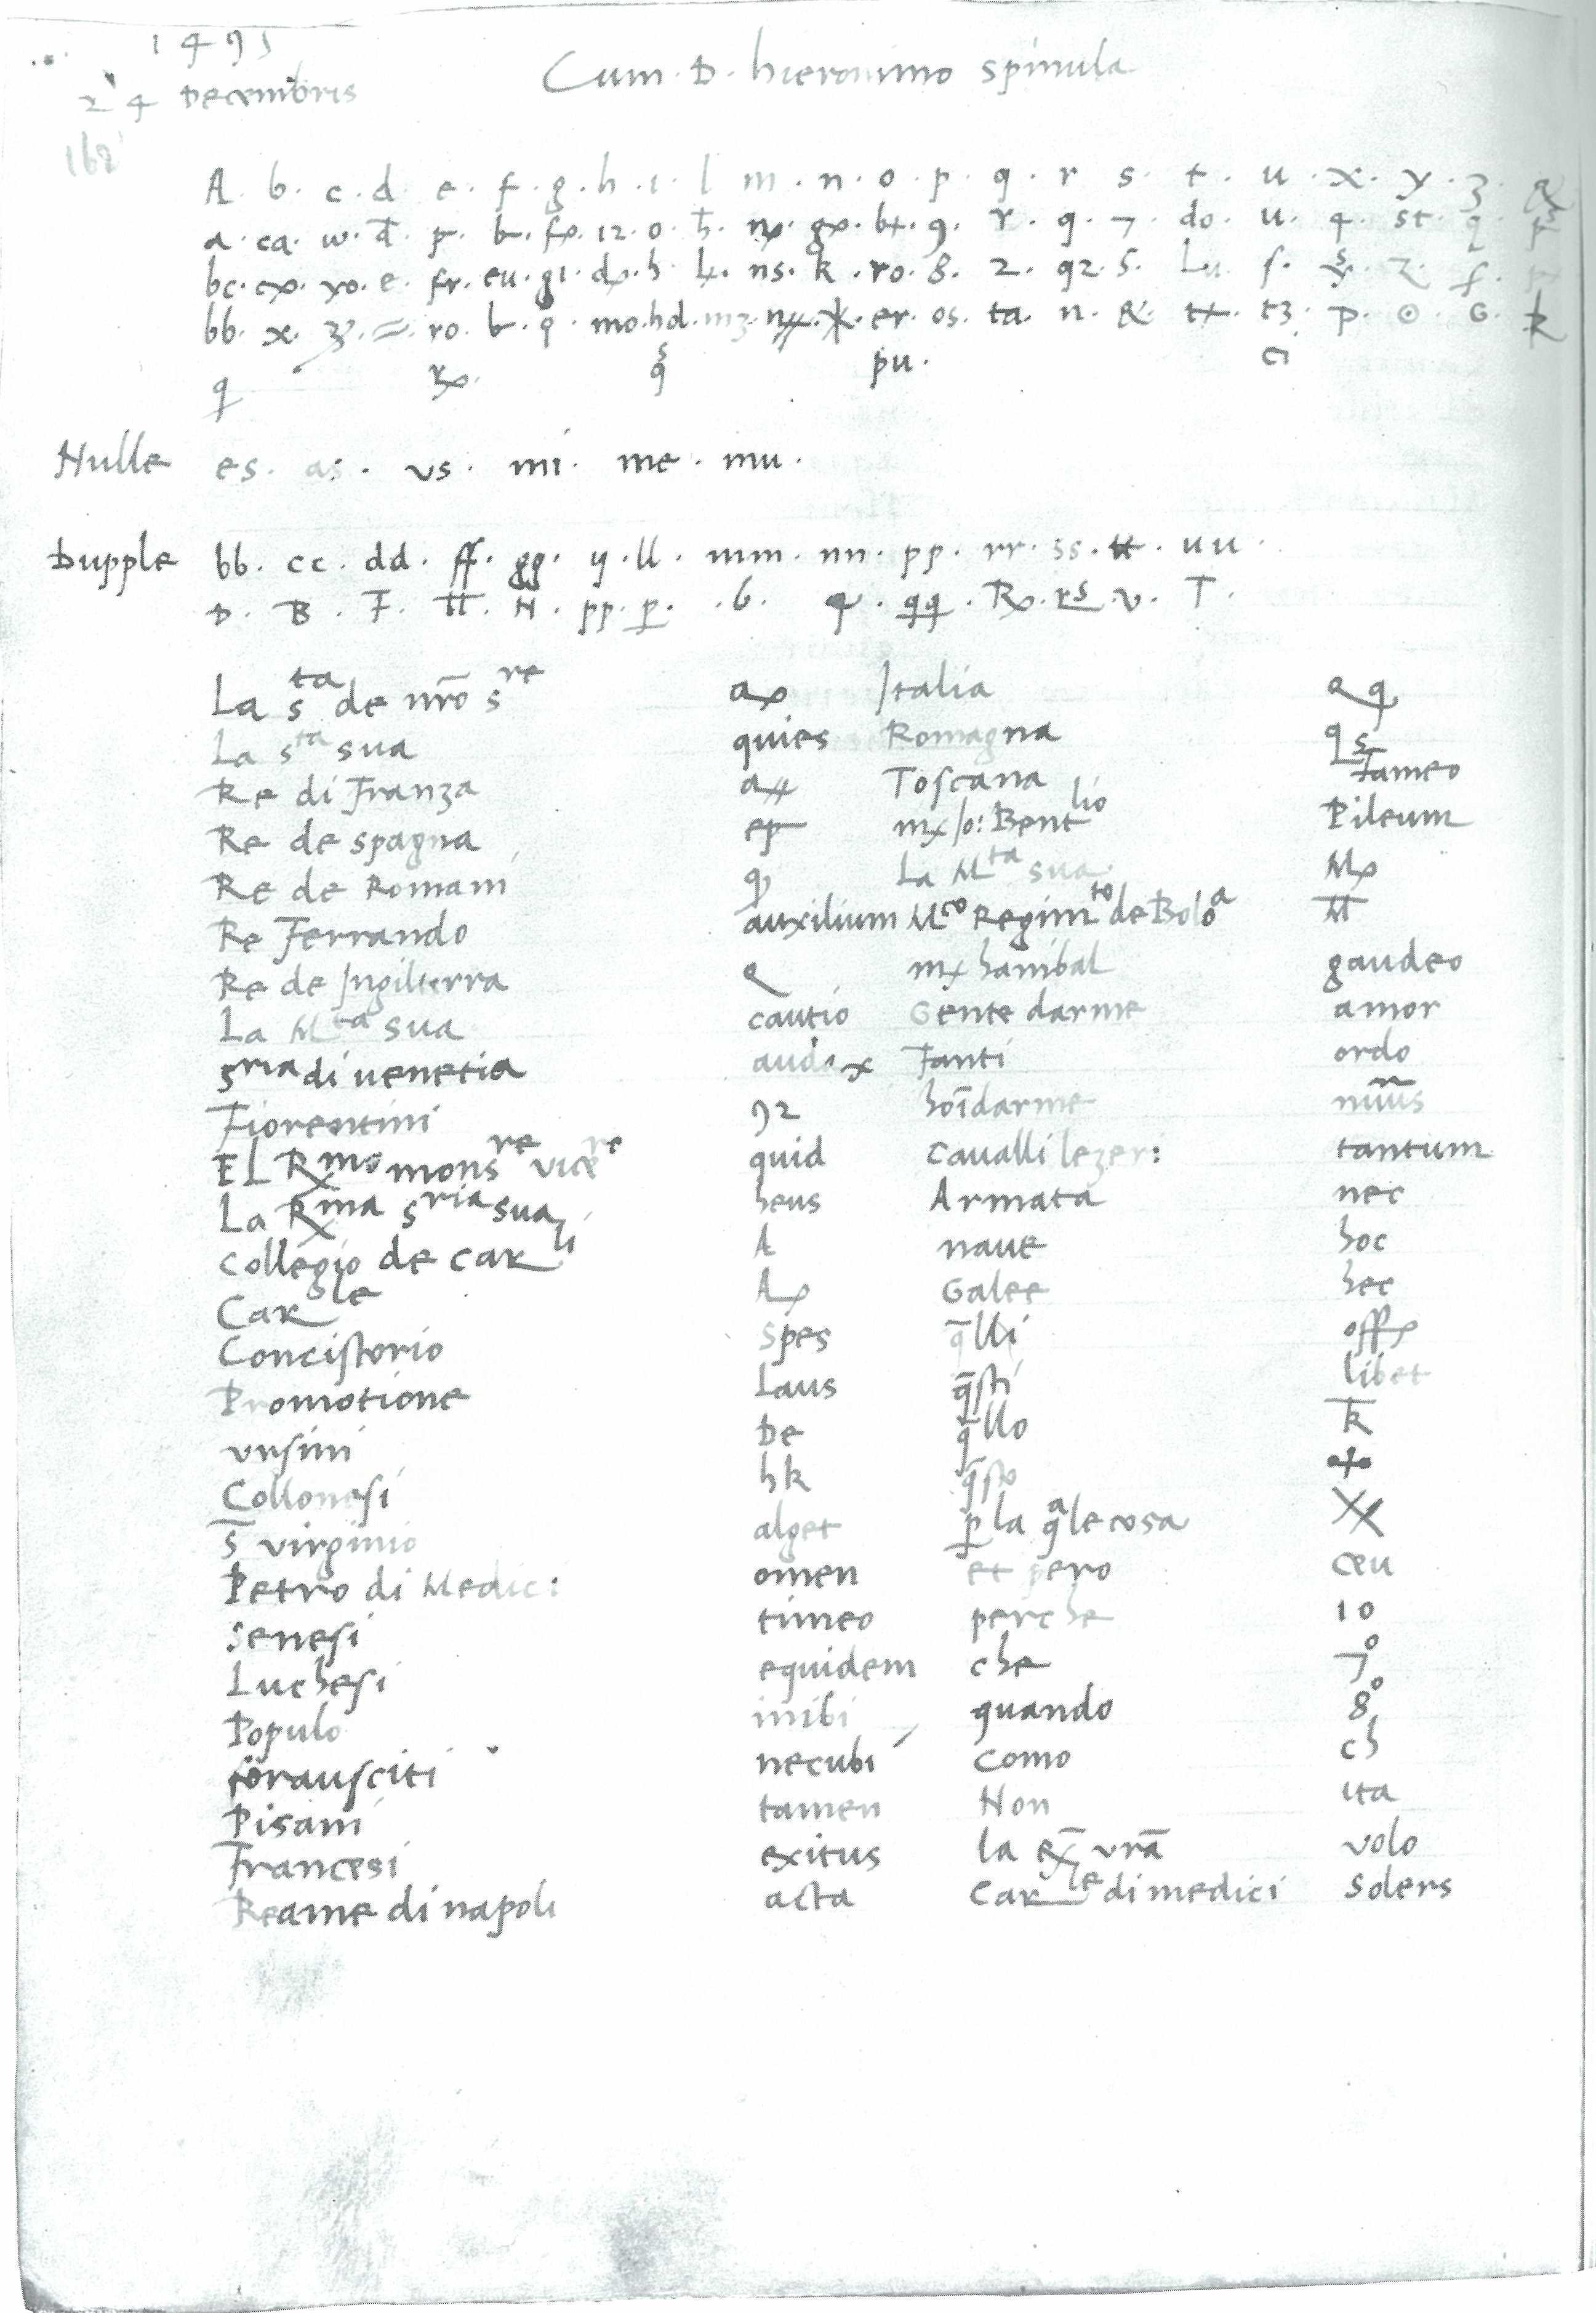 1495
24 Decembris
162
Cum · D · hieronimo spinula
A · b · c · d · e · f · g · h · i · l · m · n · o · p · q · r · s · t · u · x · y · z ·
a · ca · w · d · p · b · fx · 12 · 0 · h · nx · gx · bt · 9 · r · q · 7 · do · u · 4 · st · q
bc · cx · yo · e · fr · eu · gi · dx · h · lt · ns · k · ro · 8 · 2 · q2 · s · Lu · f ·
bb · x · ro · b · q · mo · hd · mz · er · os · ta · n · & · tt · tz · p · ⊙ · G ·
q rx · q pu · ci
Nulle es · as · vs · mi · me · mu ·
Dupple bb · cc · dd · ff · gg · y · ll · mm · nn · pp · rr · ss · tt · uu ·
D · B · F · TT · H · pp · p · 6 · q · qq · Rx · rs · v · T ·
La sta de nr̄o sre ax Italia aq
La sta sua quies Romagna qs
Re di Franza a# Toscana tameo
Re de spagna ep mx Io: Bentlio Pileum
Re de Romani q La Mta sua Mx
Re Ferrando auxilium Mco Regimto de Boloa M̄
Re de Ingilterra Q mx hanibal gaudeo
La Mta sua cautio Gente darme amor
sria di uenetia audax Fanti ordo
Fiorentini 92 hoī darme
EL Rmo monsre vicere quid Caualli lezeri: tantum
La Rma sria sua heus Armata nec
Collegio de Carli A naue hoc
Carle Ax Galee hec
Concistorio Spes q̄lli offx
Promotione Laus q̄sti libet
vrsini De q̄llo k̄
Collonesi hk q̄sto
S̄ virginio alget p la qale cosa XX
Petro di Medici: omen et pero ceu
Senesi timeo perche 10
Luchesi equidem che 7o
Populo inibi quando 8o
forausciti necubi como ch
Pisani tamen Non ita
Francesi exitus la ex̄ vr̄a volo
Reame di napoli acta Carle di medici Solers